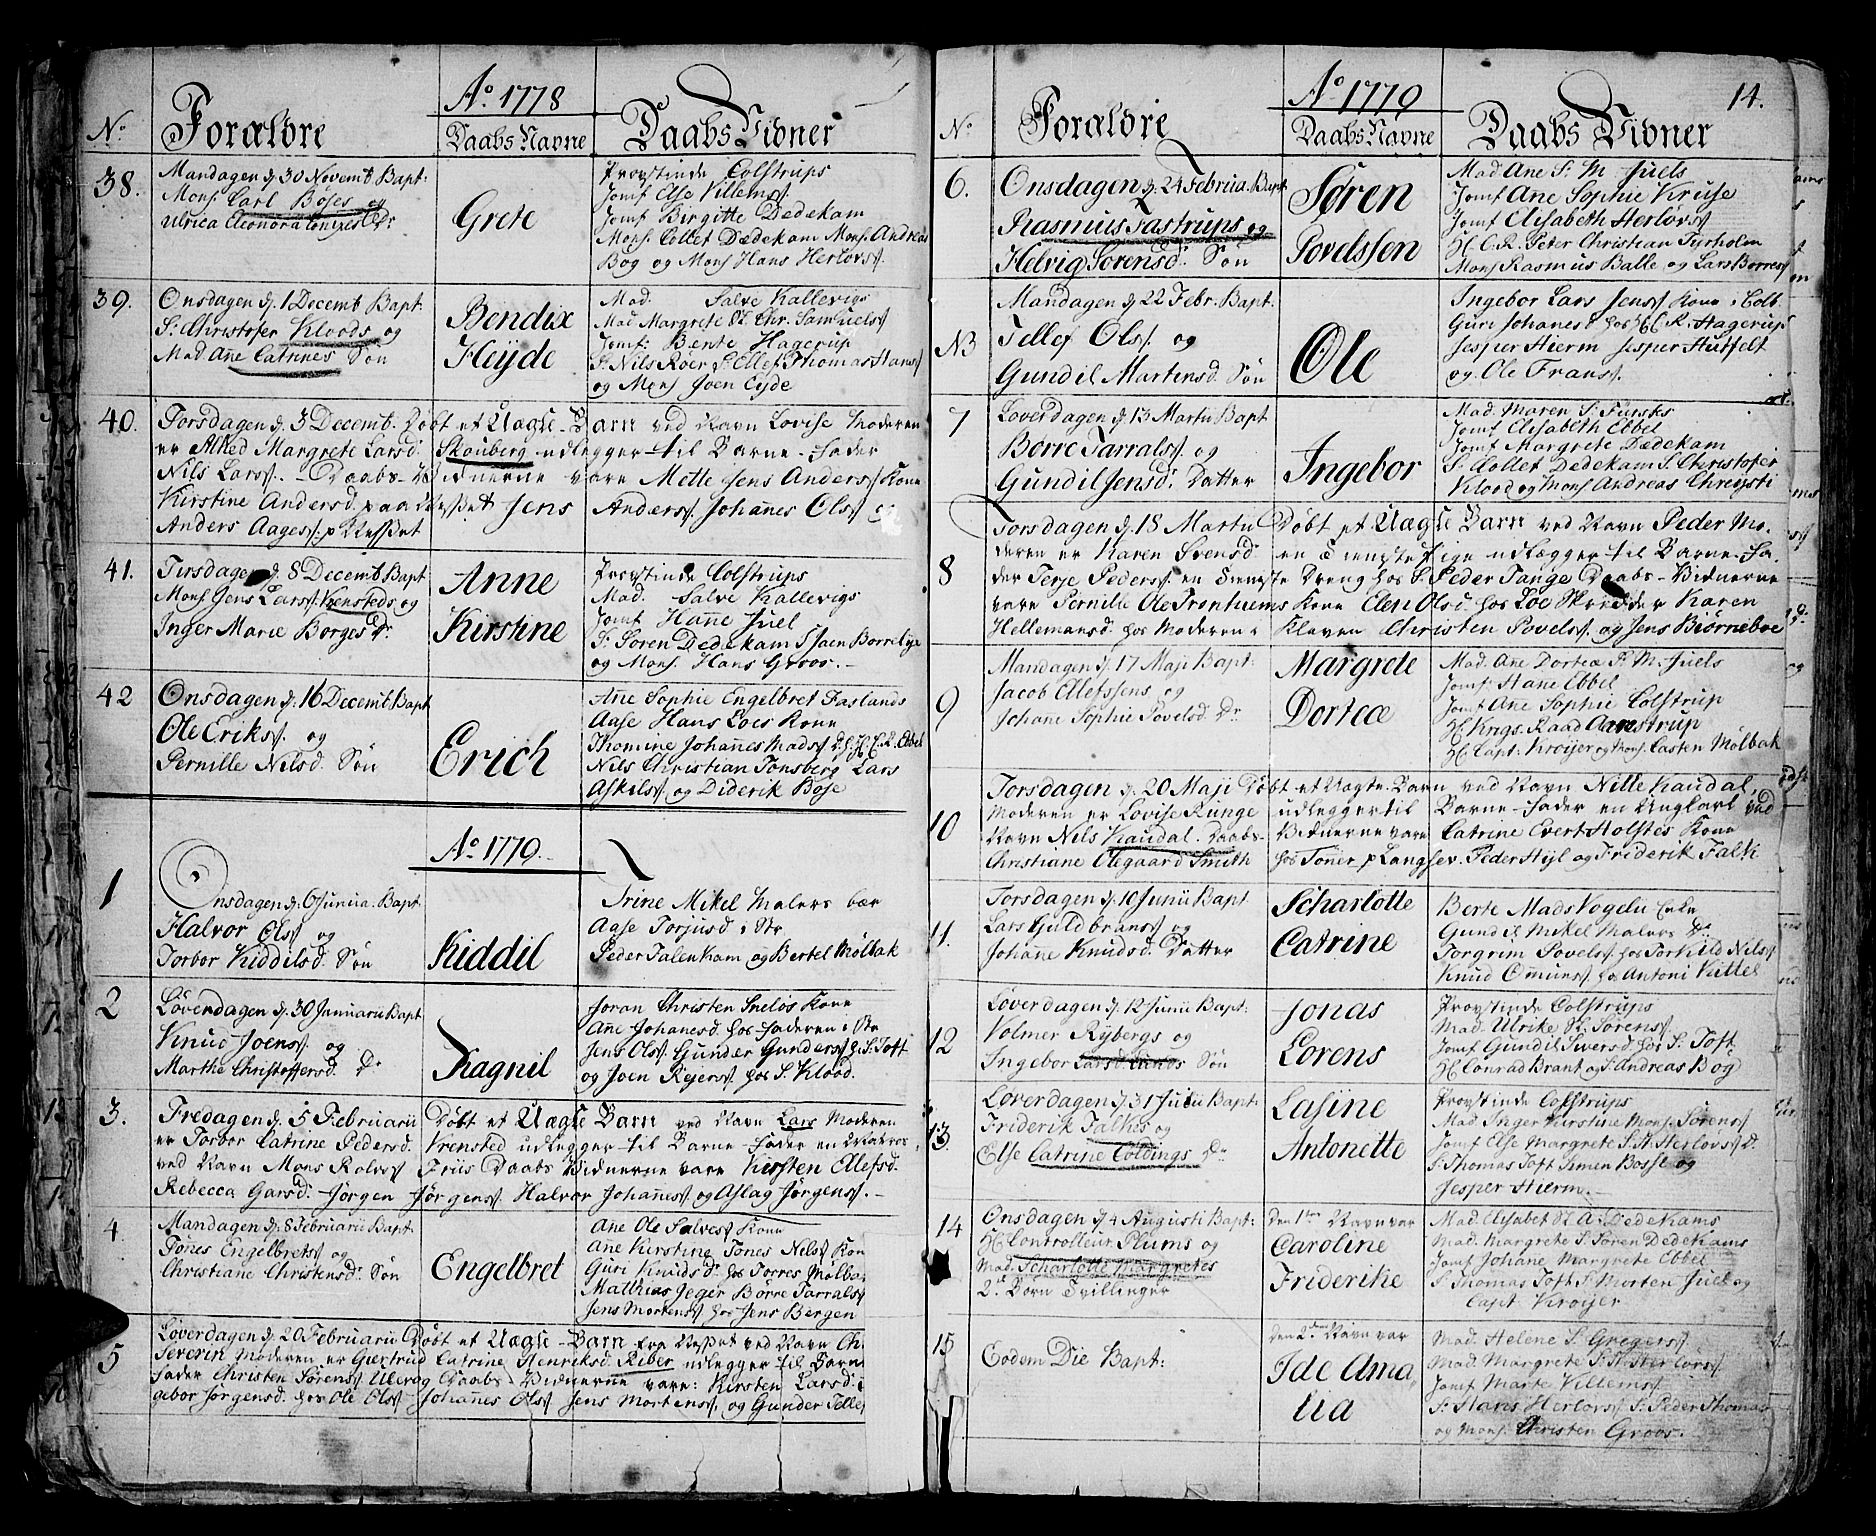 Aº 1778
Nº Forældre Daabs Navne Daabs Vidner
38. Mandagen d. 30 Novemb Bapt:
Mons. Carl Boses og
Ulrica Eleonora Dr
Grete
Provstinde Colstrups
Jomf Else Villems
Jomf Birgitte Dedekam
Mons. Collet Dædekam Mons. Andreas
Bog og Mons Hans Herlovs.
39. Onsdagen d. 1 Decemb Bapt:
S. Christofer Kloods og
Mad Ane Catrines Søn
Bendix
Heyde
Mad. Salve Kallevigs
Mad Margrete Sl. Chr. Samuels
Jomf: Bente Hagerup
S. Nils Røer S. Ellef Thomas Hans
og Mons Joen Eyde
40. Torsdagen d. 3 Decemb. Døbt et Uægte Barn ved Navn Lovise Moderen
er Ahed Margrete Larsd. Skouberg udlegger til Barne-Fader
Nils Lars. - Daabs-Vidnerne vare Mette Jens Anders Kone
Kirstine Andersd. paa Nesset Jens Anders. Johanes Ols og
Anders Aages. p Nesset
41. Tirsdagen d. 8 Decemb Bapt
Mons. Jens Lars. Krensteds og
Inger Marie Borges Dr
Anne
Kirstine
Provstinde Colstrups
Mad. Salve Kallevigs
Jomf Hane Juel
S. Søren Dedekam S Joen Borrelye
og Mons. Hans Groos. -
42 Onsdagen d. 16 Decemb. Bapt
Ole Eriks. og
Pernille Nilsd. Søn
Erich
Ane Sophie Engelbret Faslands
Aase Hans Loes Kone
Thomine Johanes Mads D. H. C. R. Ebbel
Nils Christian Tonsberg Lars
Askils og Diderik Bose
Aº 1779.
1 Onsdagen d. 6 Janua. Bapt.
Halvor Ols og
Torbor Kiddilsd. Søn
Kiddil
Trine Mikel Malers bær
Aase Torjusd i Str
Peder Falenkam og Bertel Mølbak
2 Løverdagen d. 30 Januarii Bapt
Knud Joens og
Marthe Christoffersd. Dr
Ragnil
Joran Christen Snelos Kone
Ane Johanesd hos Faderen i Str
Jens Ols. Gunder Gunders h. S. Toft
og Joen Rejers. hos S. Klood.
3. Fredagen d. 5 Februarii Døbt et Uægte Barn ved Navn Lars Moderen
er Torbor Catrine Pedersd. Krensted udlegger til Barne-Fader en Matros
ved Navn Mons Rolvs Friis Daabs Vidnerne vare Kirsten Ellefsd.
Rebecca Garsd. Jørgen Jørgens Halvor Johanes og Aslag Jørgens. -
4. Mandagen d. 8 Februarii Bapt.
Tønes Engelbrets og
Christiane Christensd. Søn
Engelbret
Ane Ole Salves Kone
Ane Kirstine Tones Nils Kon
Guri Knudsd. hos Torres Mølba
Matthias Jeger Børre Tarrals
Jens Mortens hos Jens Bergen
5 Løverdagen d. 20 Februarii Døbt et Uægte Barn fra Nesset ved Navn Ch
Severin Moderen er Giertrud Catrine Henriksd. Riber udlegger til Barn
Fader Christen Sørens Daabs Vidnerne vare: Kirsten Larsd
gebor Jørgensd. hos Ole Ols Johanes Ols Jens Mortens, og Gunder Telle
14.
Aº 1779
Nº Forældre Daabs Navne Daabs Vidner
6. Onsdagen d. 24 Februa. Bapt
Rasmus Tastrups og
Helvig Sorensd. Søn
Søren
Povelssen
Mad Ane S. M. Juels
Jomf Ane Sophie Kruse
Jomf Elisabeth Herlovs
H. C. R. Peter Christian Tyrholm
Mons Rasmus Balle og Lars Borres
NB Mandagen d. 22 Febr. Bapt:
Tellef Ols. og
Gundil Martensd. Søn
Ole
Ingebor Lars Jens Kone i Colb
Guri Johanesd hos H. C. R. Hagerup
Jesper Hierm Jesper Hutfelt
og Ole Frans.
7 Loverdagen d. 13 Martii Bapt
Børre Tarrals. og
Gundil Jensd. Datter
Ingebor
Mad. Maren S. Fürsts
Jomf Elisabeth Ebbel
Jomf Margrete Dædekam
S. Collet Dedekam S. Christofer
Klood og Mons Andreas Chrysti
8 Torsdagen d. 18 Martii Døbt et Uægte Barn ved Navn Peder Mo-
deren er Karen Svensd. en Tienste Pige udlægger til Barne-Fa-
der Terje Peders. en Tienste Dreng hos S. Peder Tange Daabs-Vidnerne
vare Pernille Ole Trontuems Kone Elen Olsd. hos Loe Skredder Karen
Hellemansd. hos Moderen i Kleven Christen Povels. og Jens Biørneboe
9 Mandagen d. 17 Maji Bapt:
Jacob Ellefssens og
Johane Sophie Povelsd. Dr
Margrete
Dorteæ
Mad. Ane Dorteæ S. M. Juels
Jomf: Hane Ebbel
Jomf Ane Sophie Colstrup
H. Krigs Raad Aarestrup
H. Capt. Krøijer og Mons. Casten Mølbak
10 Torsdagen d. 20 Maji Døbt et Uægte Barn ved Navn Nille Kaudal,
Moderen er Lovise Runge udlegger til Barne-Fader en Ungkarl ved
Navn Nils Kaudal. Daabs-Vidnerne vare Catrine Evert Holstes Kone
Christiane Olegaard Smith hos Toner p Langsev. Peder Hyl og Friderik Falk
11. Torsdagen d. 10 Junii Bapt
Lars Guldbrans. og
Johane Knudsd. Datter
Scharlotte
Catrine
Berte Mads Vogelii Enke
Gundil Mikel Malers Dr
Torgrim Povels. hos Torkild Nils
Knud Omuns hos Antoni Kittel
12 Løverdagen d. 12 Junii Bapt:
Volmer Rybergs og
Ingebor Larsd. Søn
Jonas
Lorens
Provstinde Colstrups
Mad. Ulrike Sl. Sørens
Jomf Gundil Siversd hos S. Toft
H. Conrad Brant og S. Andreas Bog
13. Løverdagen d. 31 Julii Bapt:
Friderik Falkes og
Else Catrine Coldings Dr
Lasine
Antonette
Provstinde Colstrups
Mad. Inger Kirstine Mons. Sørens
Jomf Else Margrete S. H. Herlovs D.
S. Thomas Toft Simen Bosse og
Jesper Hierm. -
14 Onsdagen d. 4 Augusti Bapt:
H. Controlleur Plums og
Mad. Scharlotte Margretes
2de Børn Tvillinger
Den 1ste Navn var
Caroline
Friderike
Mad. Elisabet Sl. A. Dedekams
Mad. Margrete S. Søren Dedekams
Jomf Johane Margrete Ebbel
S. Thomas Toft S. Morten Juel og
Capt Krøijer
15 Eodem Die Bapt:
Den 2den Navn var
Ide Ama
lia
Mad. Helene S. Gregers
Mad. Margrete S. H. Herlovs.
Jomf Marte Villems
S. Hans Herlovs S. Peder Thomas
og Mons. Christen Groos.